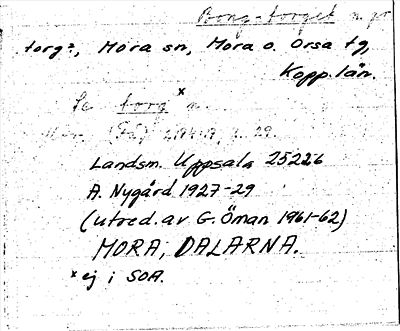 Bong-torget n. pr
torg?, Mora sn, Mora o. Orsa tg,
Kopp. län.
Se torg x n.
Landsm. Uppsala 25226
A. Nygård 1927-29
(utred. av G. Öman 1961-62)
MORA, DALARNA.
x ej i SOA.